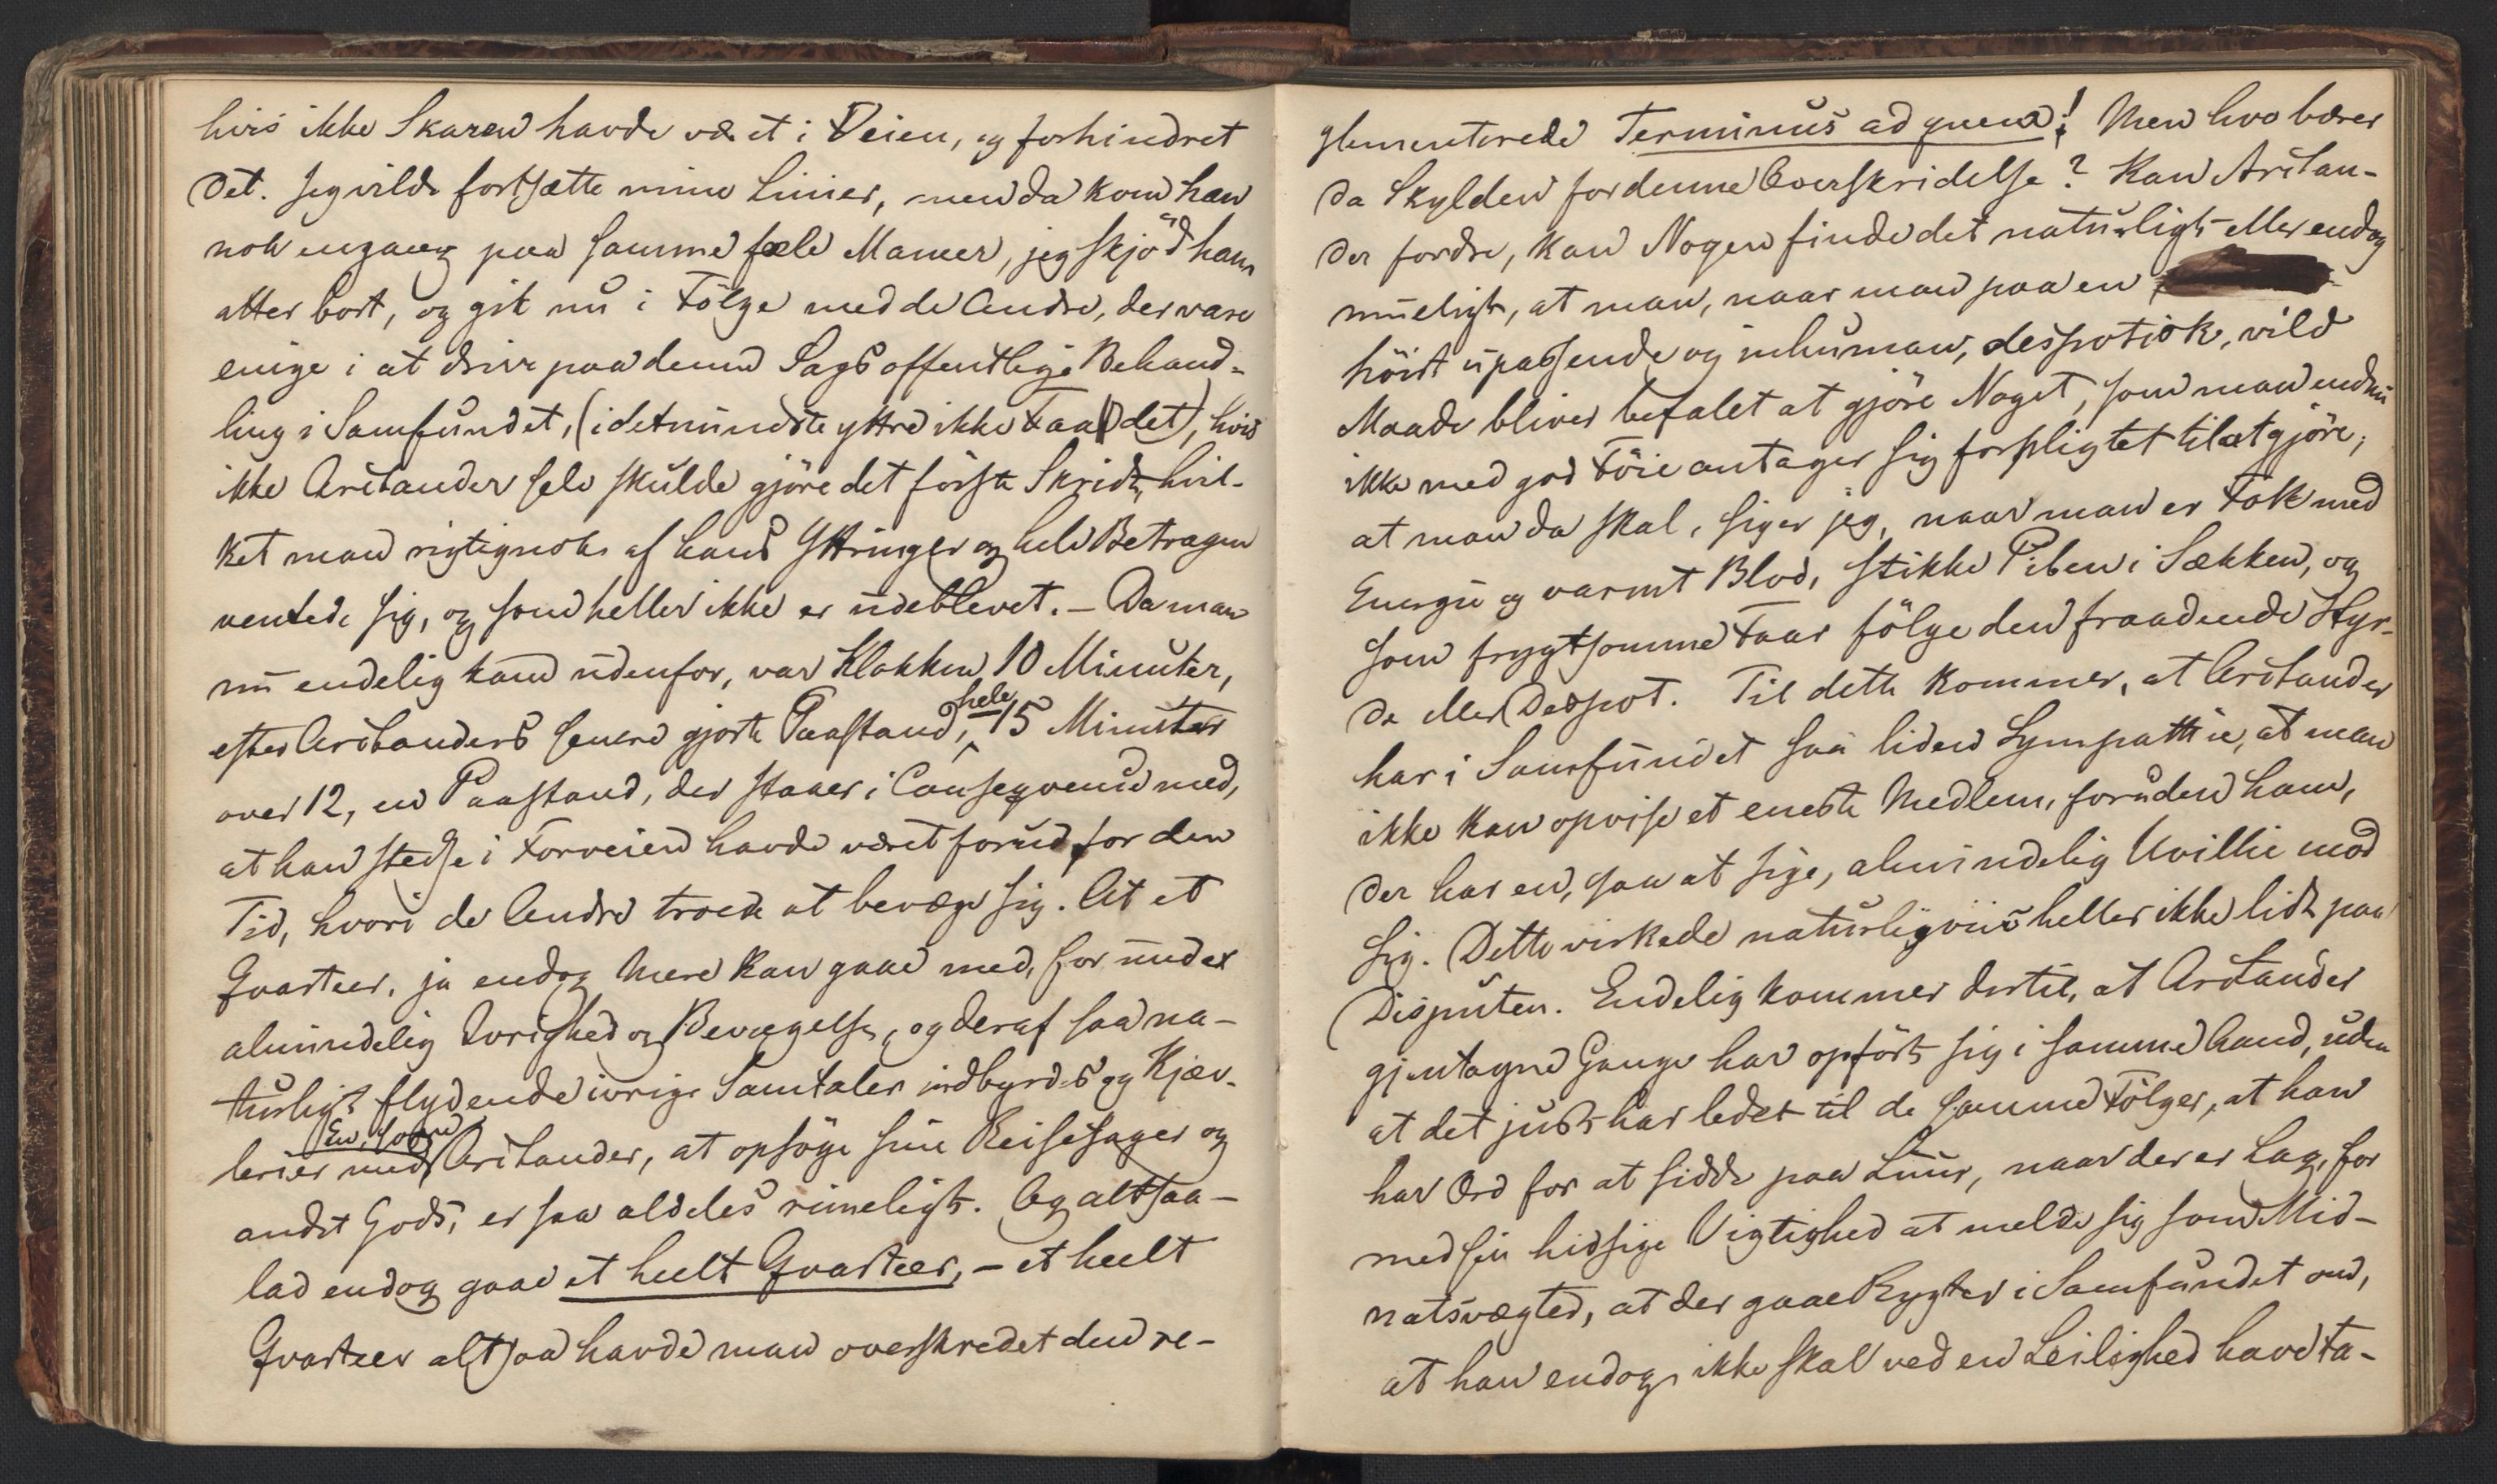 hvis ikke Skaren havde været i Veien, og forhindret
det. Jeg vilde fortsætte mine Linier, men da kom han
nok engang paa samme fæle Maneer, jeg skjød ham
atter bort, og gik nu i Følge med de Andre, der vare
enige i at drive paa denne Sags offentlige Behand-
ling i Samfundet, (i det mindste yttre ikke Faa det), hvis
ikke Aritander selv skulde gjøre det første Skridt, hvil-
ket man rigtignok af hans Yttringer og hele Betragen
ventede sig, og som heller ikke er udeblevet. – Da man
nu endelig kom udenfor, var Klokken 10 Minuter,
efter Aritanders senere gjorte Paastand, hele 15 Minuter
over 12, en Paastand, der staaer i Conseqvense med,
at han stedse i Forveien havde været forud for den
Tid, hvori de Andre troede at bevæge sig. At et
Qvarteer, ja endog mere kan gaae med, for under
almindelig Ivrighed og Bevægelse, og deraf saa na-
turligt flydende ivrige Samtaler indbyrdes og Kjæv-
lerier med En, som Aritander, at opsøge sine Reisesager og
andet Gods, er saa aldeles rimeligt. Og altsaa –
lad endog gaae et heelt Qvarteer, – et heelt
Qvarteer altsaa havde man overskredet den re-
glementerede Terminus ad quem! Men hvo bærer
da Skylden for denne Overskridelse? Kan Aritan-
der fordre, kan Nogen finde det naturligt eller endog
mueligt, at man, naar man paa en
høist upassende og inhuman, despotisk, vild
Maade bliver befalet at gjøre Noget, som man endnu
ikke med god Føie antager sig forpligtet til at gjøre;
at man da skal, siger jeg, naar man er Folk med
Energie og varmt Blod, stikke Piben i Sækken, og
som frygtsomme Faar følge den fraadende Hyr-
de eller Despot. Til dette kommer, at Aritander
har i Samfundet saa liden Sympathie, at man
ikke kan opvise et eneste Medlem, foruden ham,
der har en, saa at sige, almindelig Uvillie mod
sig. Dette virkede naturligviis heller ikke lidt paa
Disputen. Endelig kommer dertil, at Aritander
gjentagne Gange har opført sig i samme Aand, uden
at det just har ledet til de samme Følger, at han
har Ord for at sidde paa Luur, naar der er Lag, for
med sin hidsige Vigtighed at melde sig som Mid-
natsvægter, at der gaae Rygter i Samfundet om,
at han endog ikke skal ved en Leilighed have ta-